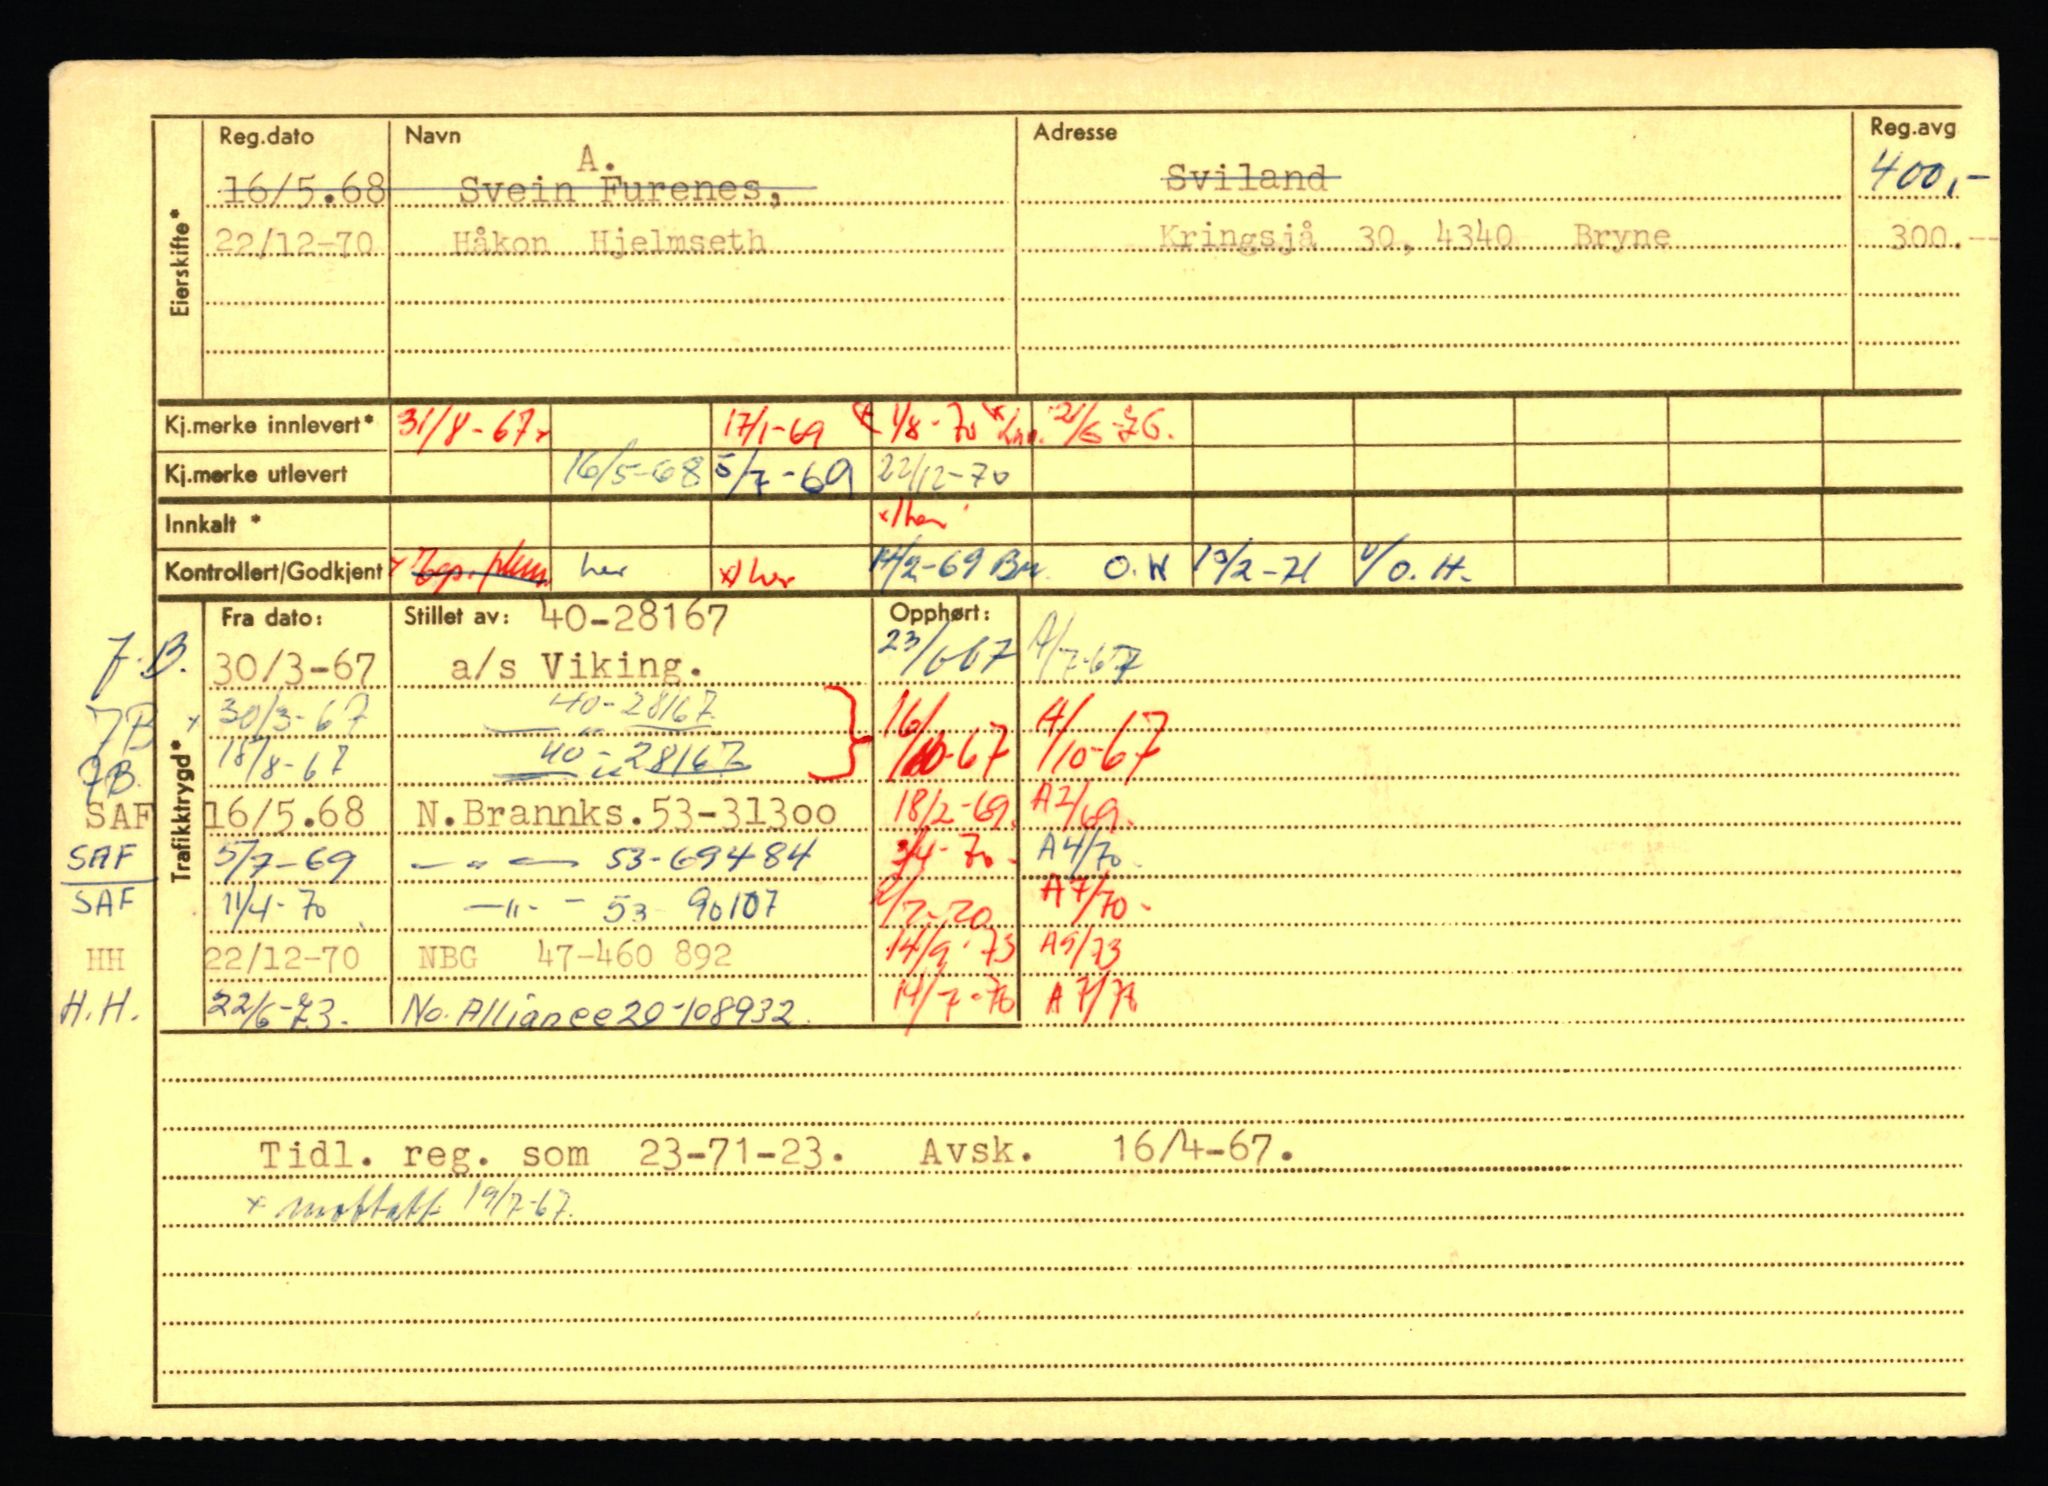 Eierskifte*
Reg.dato Navn Adresse Reg.avg
A.
16/5.68 Svein Furenes, Sviland 400,-
22/12-70 Håkon Hjelmseth Kringsjå 30, 4340 Bryne 300.--
Kj.merke innlevert* 31/8-67 17/1-69 1/8-70 21/6-76.
Kj.merke utlevert 16/5-68 5/7-69 22/12-70
Innkalt * x/her
Kontrollert/Godkjent her x/her 14/2-69 O.H 19/2-71 O.H.
Trafikktrygd*
Fra dato: Stillet av: 40-28167 Opphørt:
J.B. 30/3-67 a/s Viking. 23/6-67 A/7-67
JB x 30/3-67 40-28167 16/10-67 A/10-67
JB. 18/8-67 40-28167
SAF 16/5.68 N.Brannks.53-31300 18/2-69. A2/69.
SAF 5/7-69 — " — 53-69484 3/4-70- A4/70.
SAF 11/4-70 — " - 53 90107 /7-70 A7/70-
HH 22/12-70 NBG 47-460 892 14/9-73 A9/73
H.H. 22/6-73. No. Alliance 20-108932. 14/7-76 A7/76
Tidl. reg. som 23-71-23. Avsk. 16/4-67.
x mottatt 19/7-67.